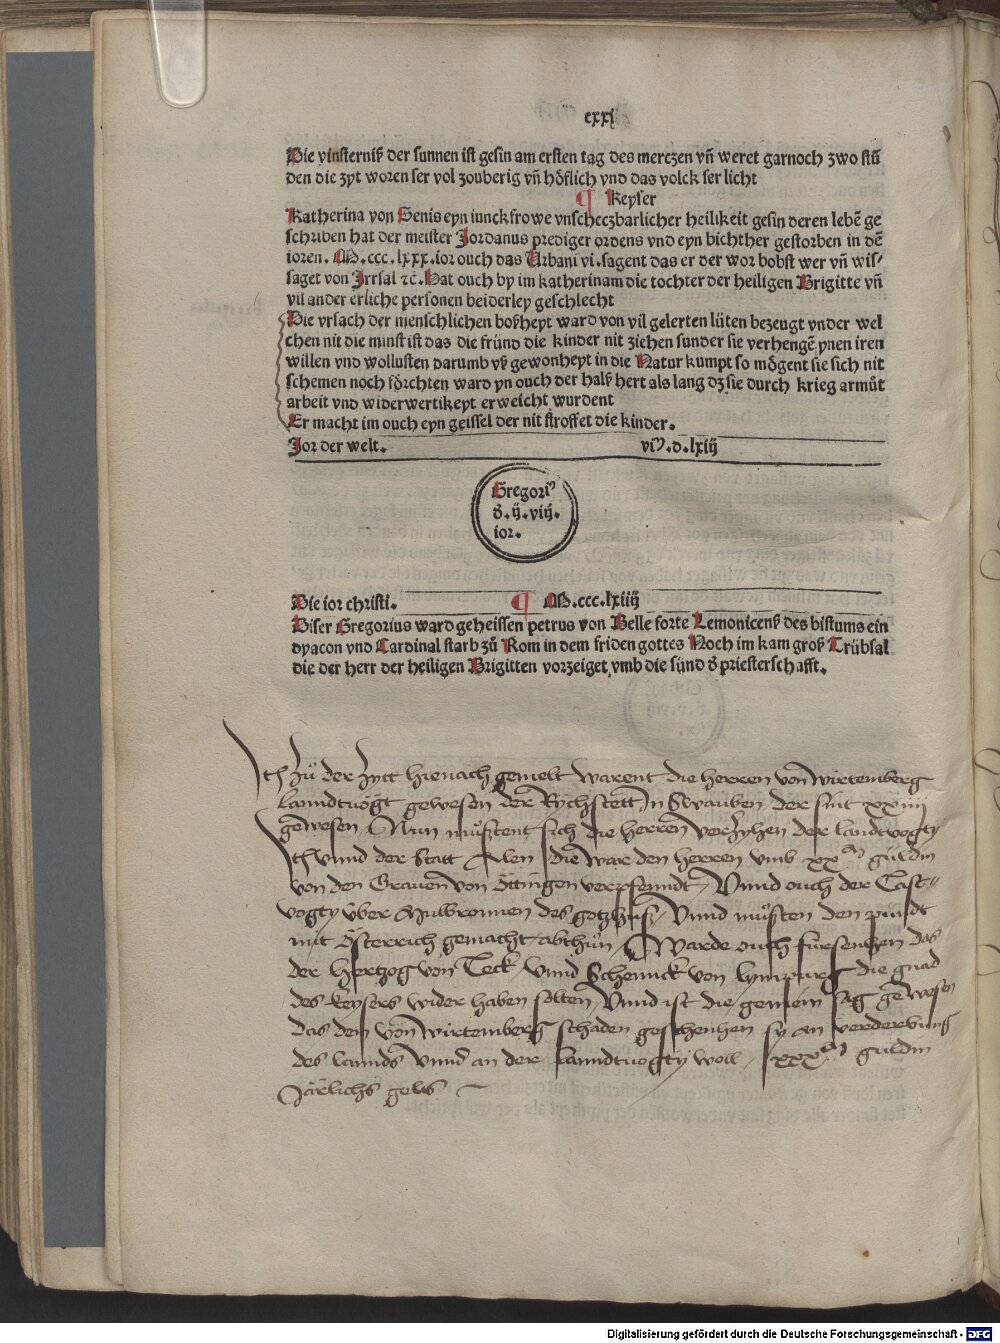 cxxi
Die vinsterniß der sunnen ist gesin am ersten tag des merczen vñ weret garnoch zwo stũ
den die zyt woren ser vol zouberig vñ höflich vnd das volck ser licht
¶ Keyser
Katherina von Senis eyn iunckfrowe vnscheczbarlicher heilikeit gesin deren lebẽ ge
schriben hat der meister Jordanus prediger ordens vnd eyn bichther gestorben in dẽ
ioren. M.ccc.lxxx.ior ouch das Urbani vi.sagent das er der wor bobst wer vñ wis⸗
saget von Irrsal ꝛc̃. Hat ouch by im katherinam die tochter der heiligen Brigitte vñ
vil ander erliche personen beiderley geschlecht
Die vrsach der menschlichen boßheyt ward von vil gelerten lüten bezeugt vnder wel
chen nit die minst ist das die fründ die kinder nit ziehen sunder sie verhengẽ ynen iren
willen vnd wollusten darumb vß gewonheyt in die Natur kumpt so mögent sie sich nit
schemen noch förchten ward yn ouch der halß hert als lang dz sie durch krieg armůt
arbeit vnd widerwertikeyt erweicht wurdent
Er macht im ouch eyn geissel der nit stroffet die kinder.
Jor der welt. viꝰ.d.lxiij
Gregoriꝰ
d̕.ij.viij.
ior.
Die ior christi. ¶ M.ccc.lxiiij
Diser Gregorius ward geheissen petrus von Belle forte Lemonicenß des bistums ein
dyacon vnd Cardinal starb zů Rom in dem friden gottes Noch im kam groß Trübsal
die der herr der heiligen Brigitten vorzeiget vmb die sünd d̕ priesterschafft.
Ith zü der zytt hienach gemelt warent die herren von wirtemberg
lanndtvögt gewesen der Rychstett In Swauben der sint xxiiij
gewesen / Nun müstent sich die herren verzyhen der landtvogty
Ith vnnd der Statt Alen die war den herren vmb xx m guldin
von den Grauen von Öttingen verpfenndt / Vnnd ouch der Cast⸗
vogty über Mulbronnen des gotzhuß / Vnnd müsten den pundt
mit Österrich gemacht abthün / Warde ouch fürsenhen das
der Hertzog von Teck vnnd Schennck von lympurg die gnad
des keysers wider haben solten / Vnnd ist die gemein sag gewesen
das dem von wirtemberg schaden geschenhen sy an verderbung
des lannds vnnd an der lanndtvogty woll xxx m guldin
Järlichs gelts
Digitalisierung gefördert durch die Deutsche Forschungsgemeinschaft - DFG